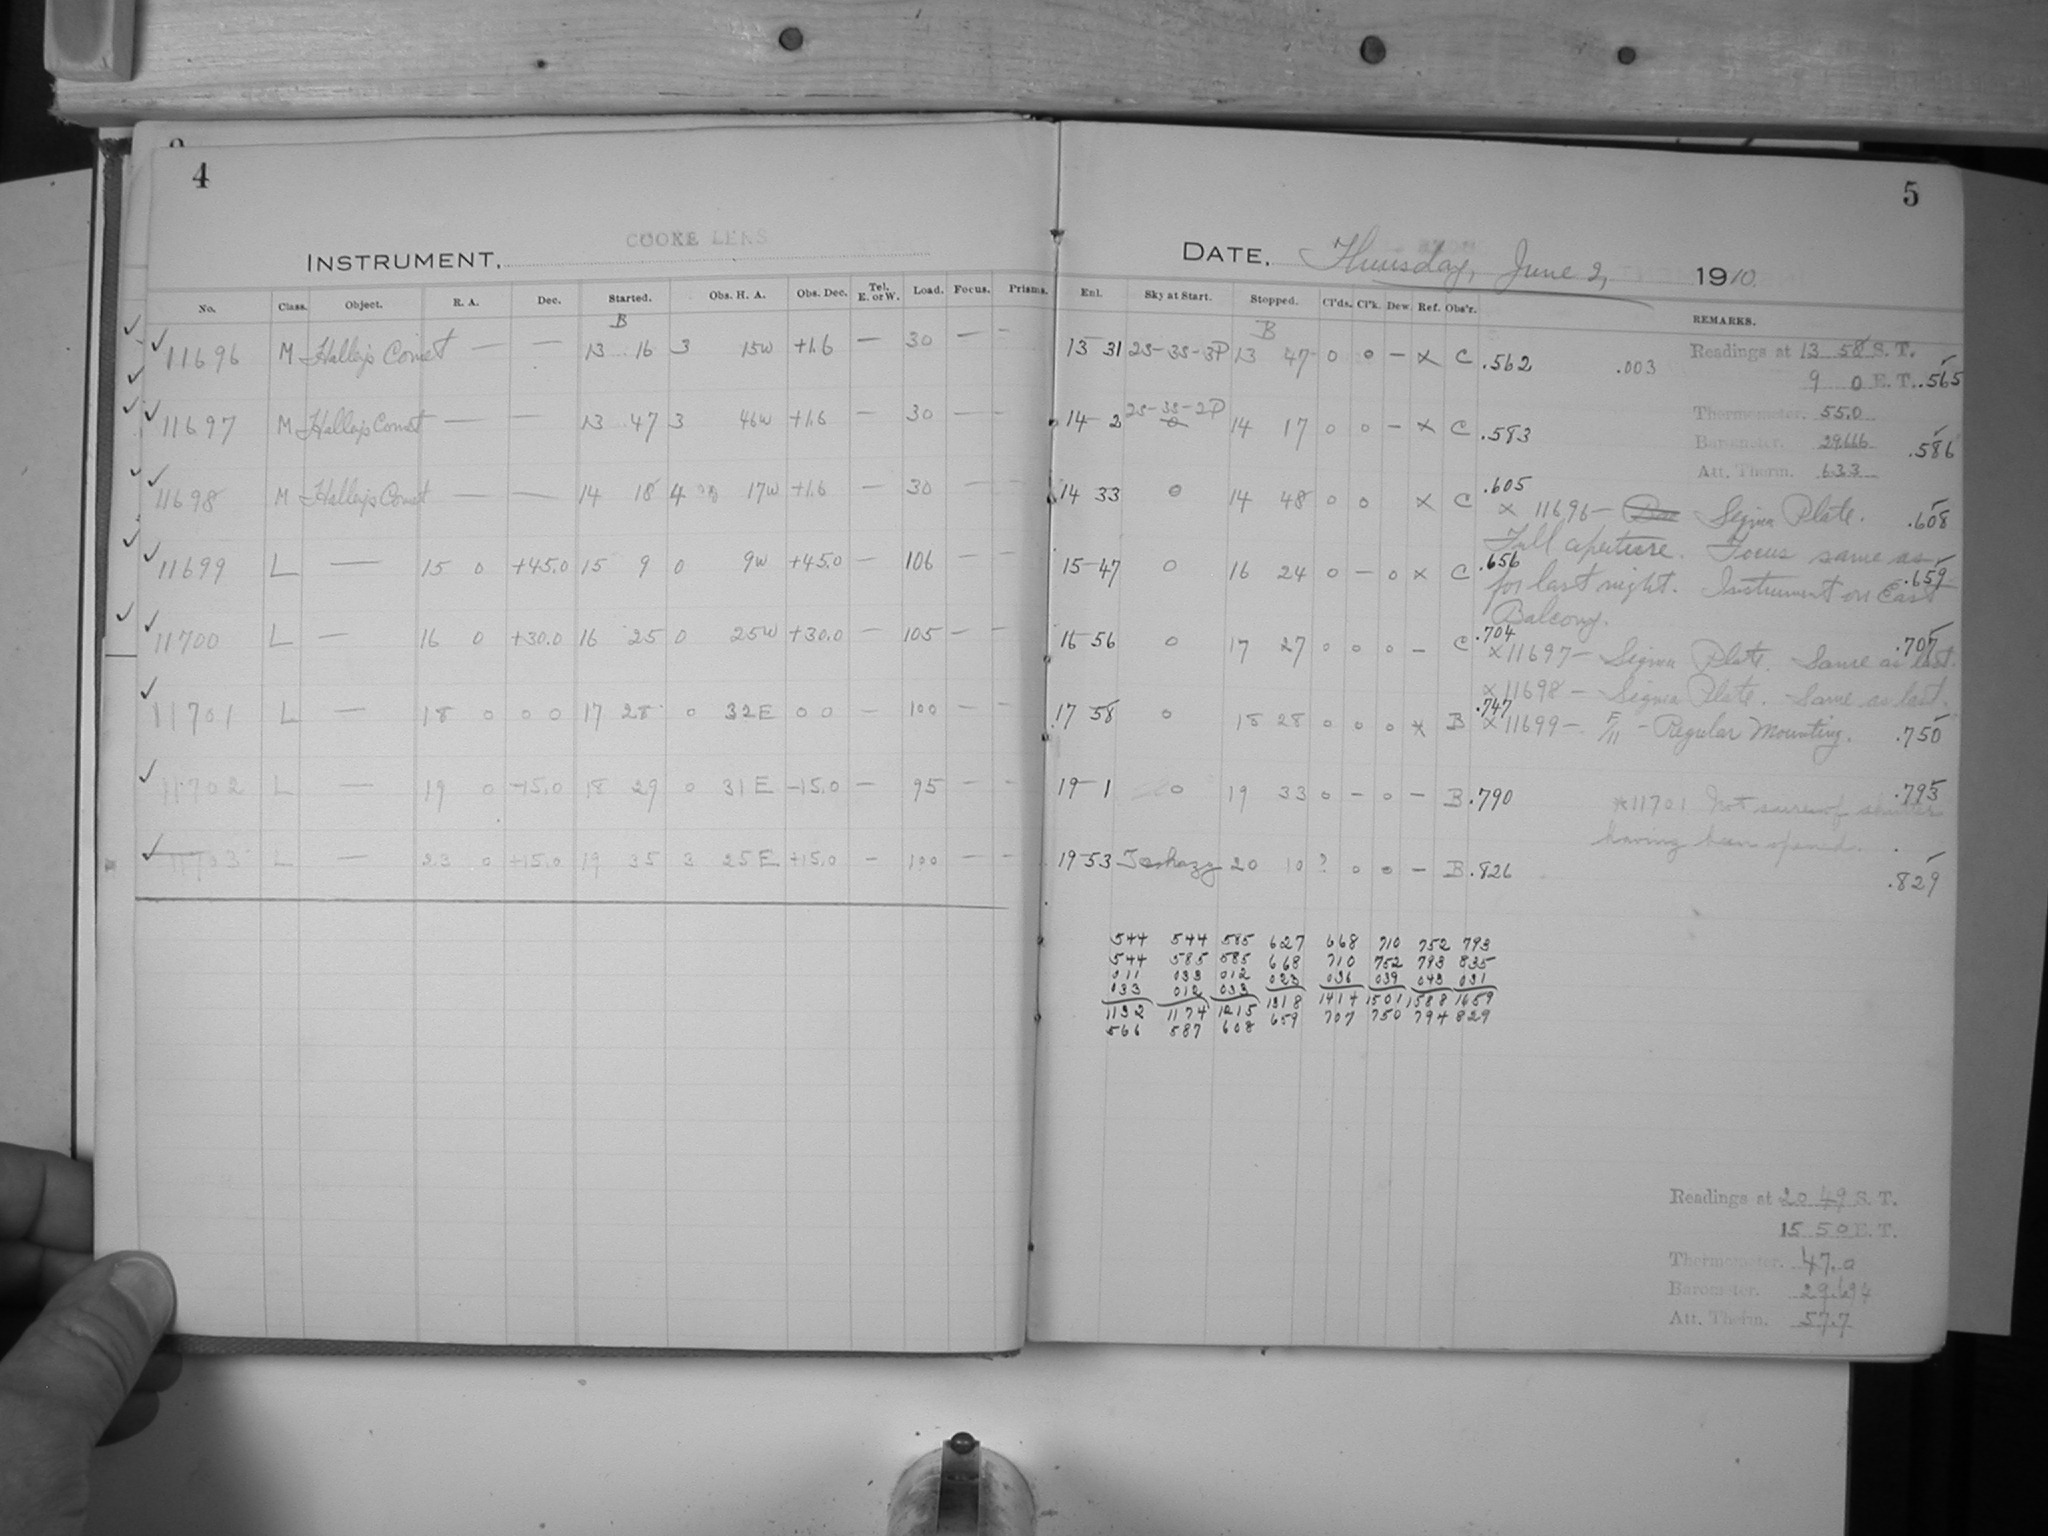 4
COOKE LENS
INSTRUMENT.
No. Class. Object. R. A. Dec. Started. Obs. H. A. Obs. Dec. Tel. E. or W. Load. Focus. Prisms.
B
✓ 11696 M Halleys Comet — — 13 16 3 15W +1.6 — 30 — —
✓ 11697 M Halleys Comet — — 13 47 3 46W +1.6 — 30 — —
✓ 11698 M Halleys Comet — — 14 18 4 17W +1.6 — 30 — —
✓ 11699 L — 15 0 +45.0 15 9 0 9W +45.0 — 106 — —
✓ 11700 L — 16 0 +30.0 16 25 0 25W +30.0 — 105 — —
✓ 11701 L — 18 0 0 0 17 28 0 32E 0 0 — 100 — —
✓ 11702 L — 19 0 -15.0 18 29 0 31E -15.0 — 95 — —
✓ 11703 L — 23 0 +15.0 19 35 3 25E +15.0 — 100 — —
5
DATE. Thursday, June 2, 1910.
Enl. Sky at Start. Stopped. Cl'ds. Cl'k. Dew. Ref. Obs'r. REMARKS.
B
13 31 2S-3S-3P 13 47 0 0 — x C .562 .003
14 2 2S-3S-2P 14 17 0 0 — x C .583
14 33 0 14 48 0 0 x C .605
15 47 0 16 24 0 — 0 x C .656
16 56 0 17 27 0 0 0 — C .704
17 58 0 18 28 0 0 0 x B .747
19 1 0 19 33 0 — 0 — B .790
19 53 20 10 ? 0 0 — B .826
Readings at 13 58 S. T.
9 0 E. T. .565
Thermometer. 55.0
Barometer. 29.666 .586
Att. Therm. 63.3
x 11696 — Sigma Plate. .608
Full aperture. Focus same as
for last night. Instrument on East .659
Balcony.
x 11697 — Sigma Plate. Same as last. .707
x 11698 — Sigma Plate. Same as last.
x 11699 — F/11 — Regular Mounting. .750
x 11701 Not sure of shutter .793
having been opened.
.829
544 544 585 627 668 710 752 793
544 585 585 668 710 752 793 835
011 033 012 023 036 039 043 031
033 012 033 1318 1414 1501 1588 1659
1132 1174 1215 659 707 750 794 829
566 587 608
Readings at 20 49 S. T.
15 50 E. T.
Thermometer. 47.0
Barometer. 29.694
Att. Therm. 57.7